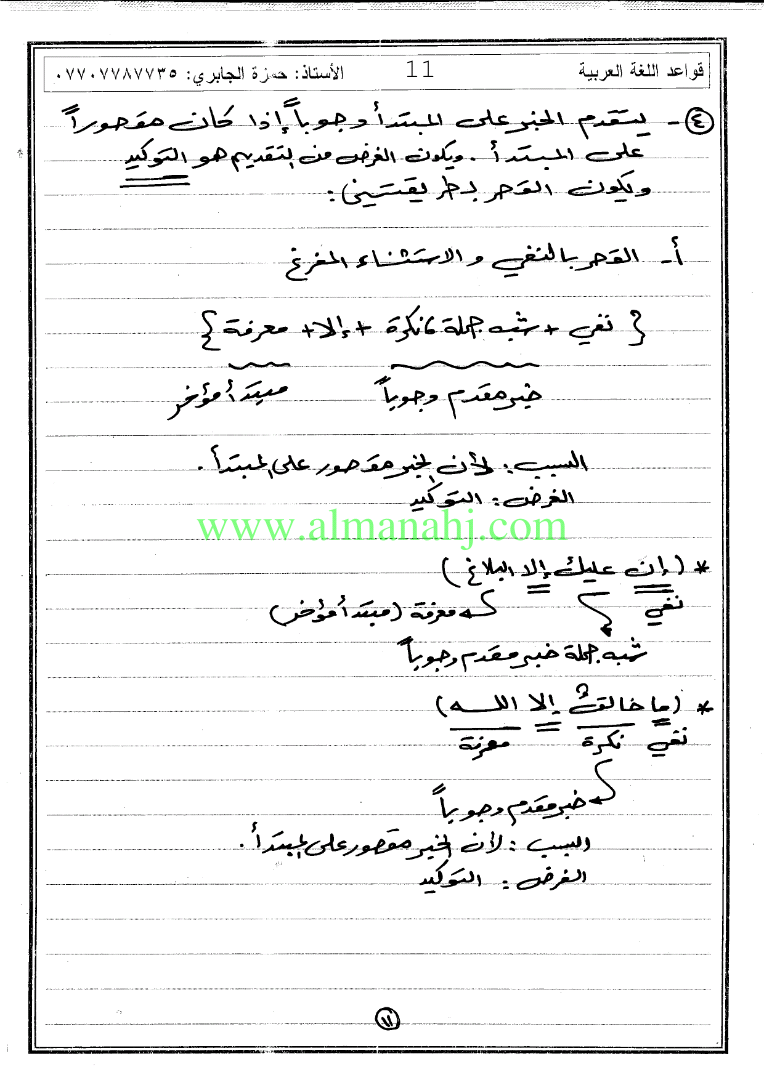 قواعد اللغة العربية 11 الأستاذ: حمزة الجابري: ٠٧٧٠٧٧٨٧٧٣٥
٤- يتقدم الخبر على المبتدأ وجوباً إذا كان مقصوراً
على المبتدأ. ويكون الغرض من التقديم هو التوكيد
ويكون القصر بطريقتين:
أ- القصر بالنفي والاستثناء المفرغ
{ نفي + شبه جملة، نكرة + إلا + معرفة }
خبر مقدم وجوباً مبتدأ مؤخر
السبب: لأن الخبر مقصور على المبتدأ.
الغرض: التوكيد
www.almanahj.com
* (إن عليك إلا البلاغ)
نفي معرفة (مبتدأ مؤخر)
شبه جملة خبر مقدم وجوباً
* (ما خالقٌ إلا الله)
نفي نكرة معرفة
خبر مقدم وجوباً
السبب: لأن الخبر مقصور على المبتدأ.
الغرض: التوكيد
١١